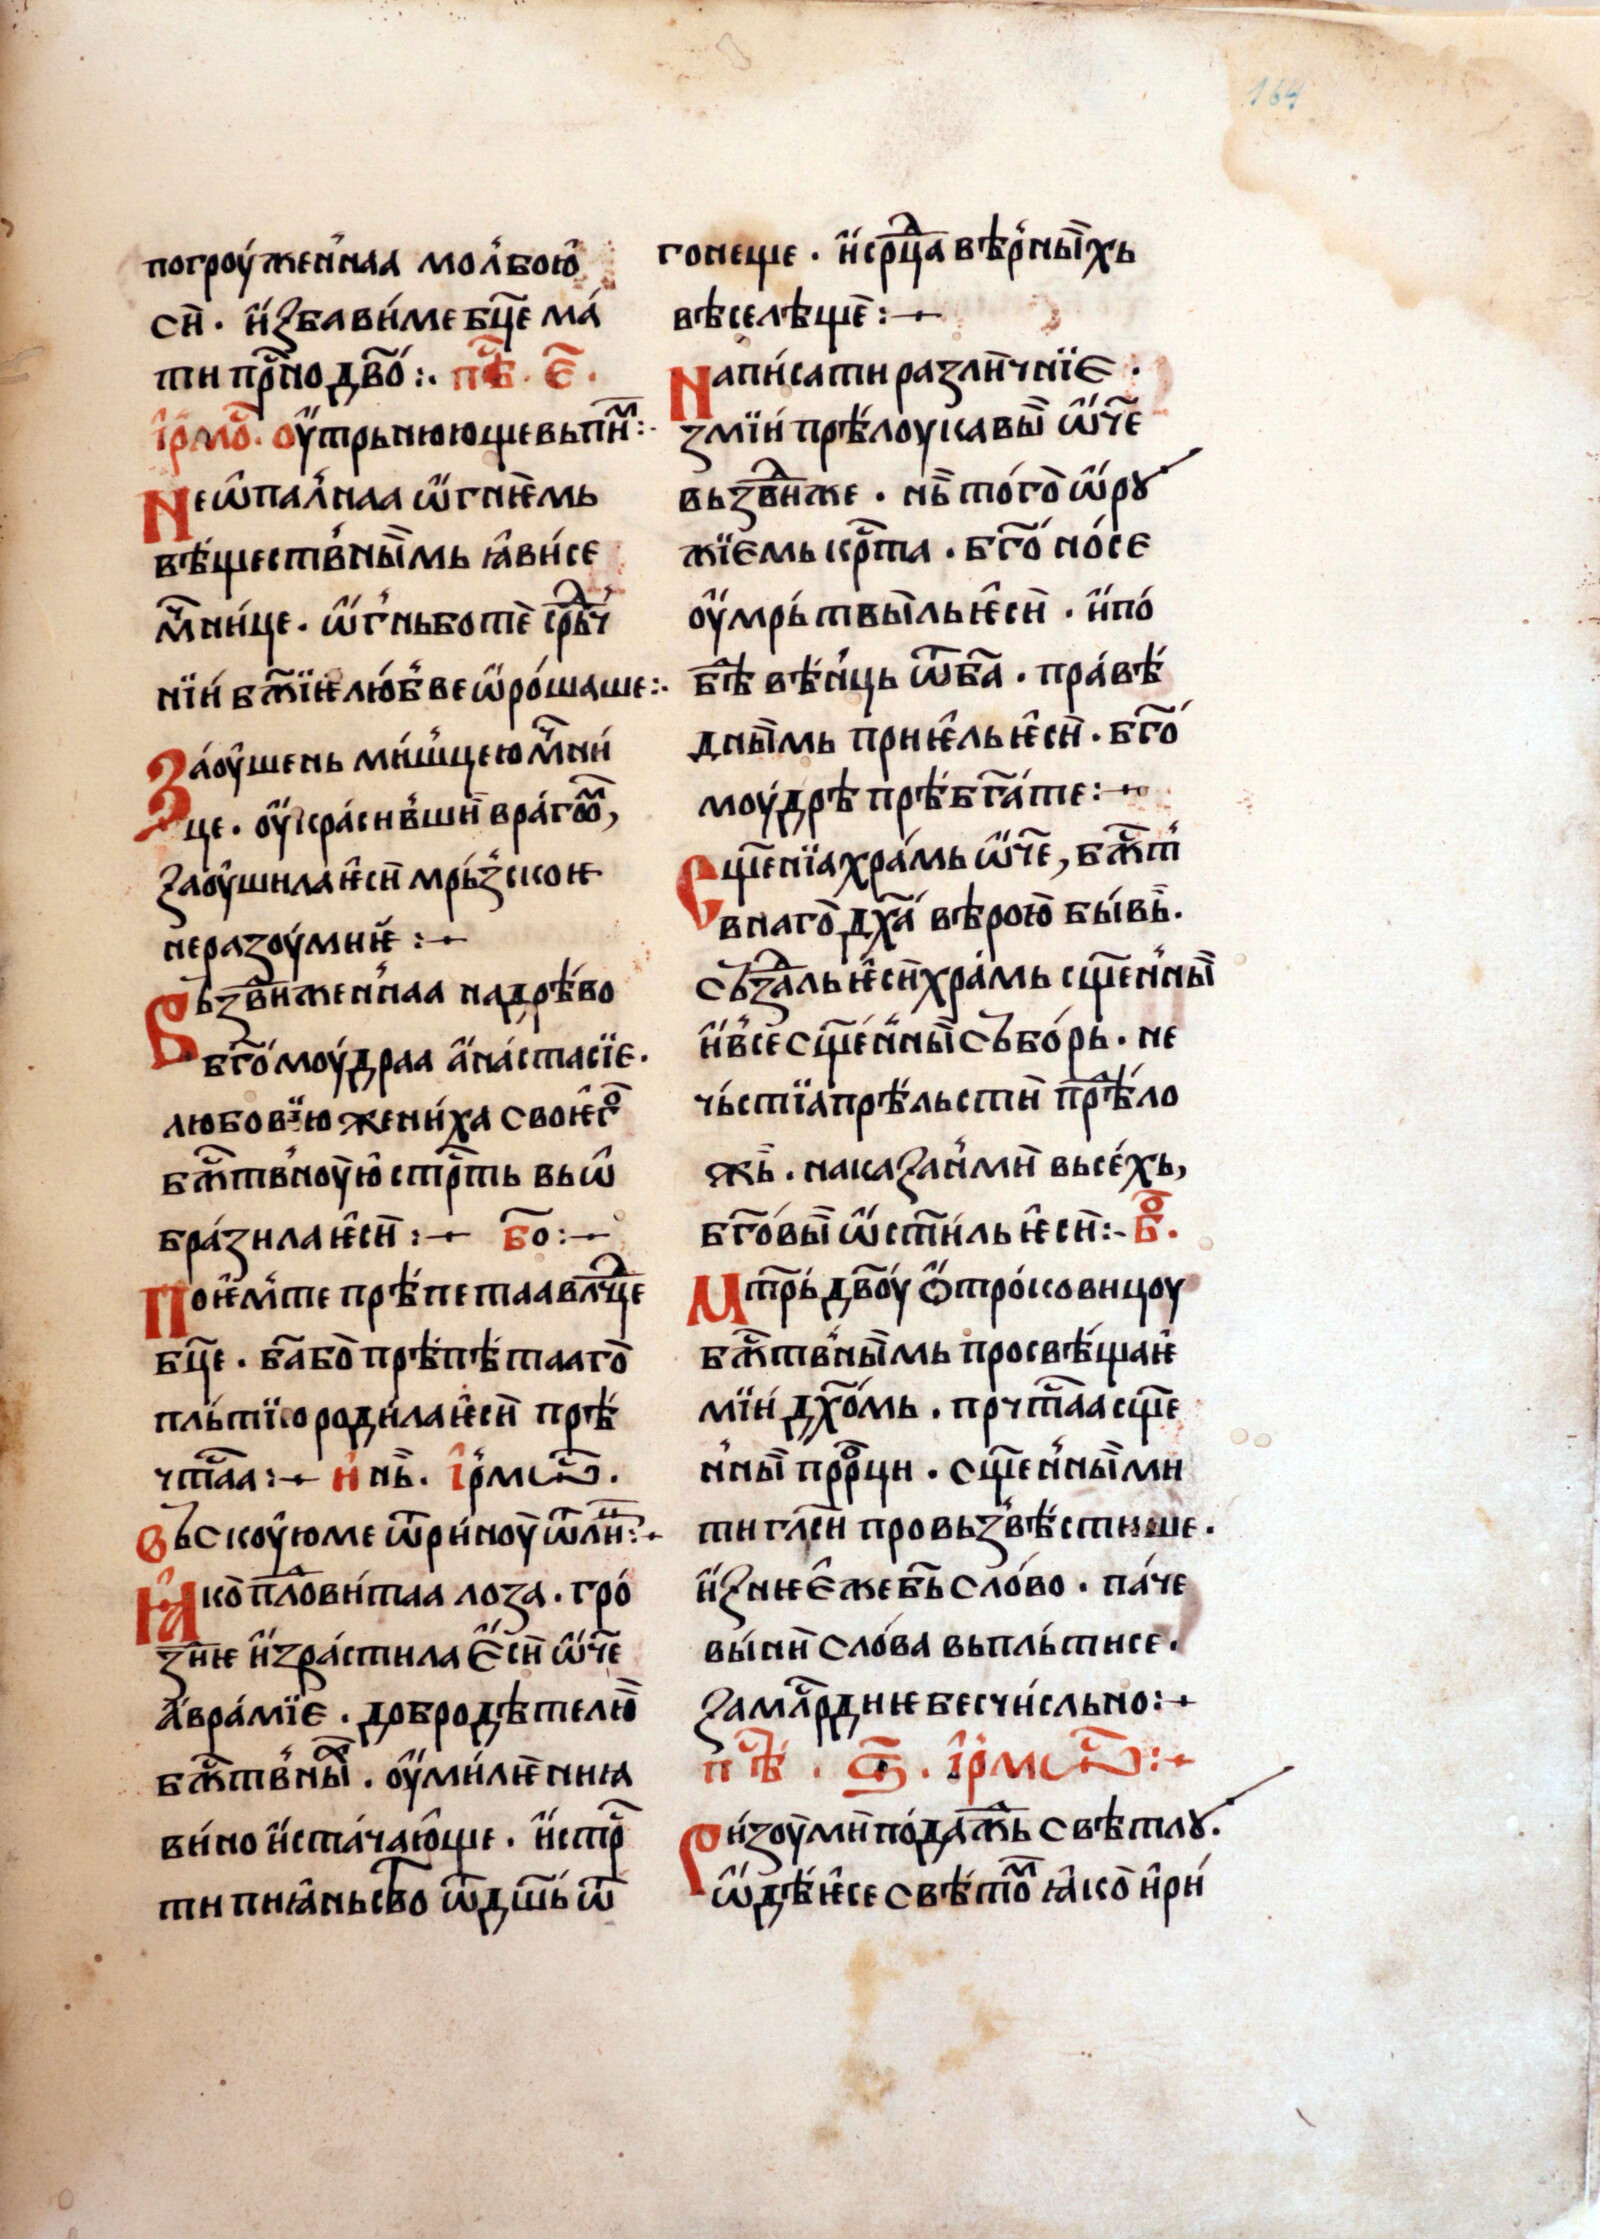 164
погроу́жен꙽наа мол꙽бою̑
си̏. и҆́збави́ме бц҃е ма́
ти пр҃но дв҃о:. пѣ҃. є҃.
і҆рмо҃. оу҆трьнююще вьпи҃:·
Неѡ҆пал꙽наа ѡ҆гнѥ̏мь
вѣ́ществ꙽ны̏мь ꙗ҆ви́се
мч҃ни́це. ѡ҆г꙽ньботе̏ ср҃ьч
нїи́ бж҃їѥ лю́б꙽ве ѡ҆ро́шаше:·
За́оу҆шень ми́ш꙽цею мч҃ни́
це. оу҆кра́снв꙽ши̏ враго҃м,
заоу҆шила ѥ҆си̏ мрьз꙽скоѥ
неразоу́миѥ̏ :⁓
Вьзв҃иженнаа на дрѣ́во
бг҃омоу́драа а҆на́стасїе.
любовїю жени́ха своѥ҆го
бж҃тв꙽ноу̏ю̑ стр҃ть вьѡ҆
бра́зила ѥ҆си̏ :⁓ бо҃:⁓
Поѥ҆м꙽те прѣ́петаа влч҃це
бц҃е. ба҃ бо̏ прѣ́пѣ́тааго̏
пль́тїю родила ѥ҆си̏ прѣ́
чт҃аа:⁓ и҆ нь̏. і҆рмѡ҃с.
Вьскоу҆ю ме ѿри́ноу̏ ѿли҃:·
Ꙗ҆ко̏ пл҃ови́таа лоза. гро́
зниѥ и҆зра́стила є҆си̏ ѡ҆ч҃е
А҆вра́мїе. добродѣтелю̏
бж҃тв꙽ны҃. оу҆ми́лѥ̏ниꙗ
ви́но и҆ста́чаю̑ще. и҆ стр҃
ти пиꙗ҆ньств҃о ѿ дш҃ь́ ѿ
гонеще. и҆ срц҃а вѣр꙽ны̏хь
вѣселѣще̏:⁓
Напи́сати разли̏чнїе.
змїи́ прѣ́лоукавы̏ ѡ҆ч҃е
вьзв҃иже. нь̏ то́го̏ ѡ҆рꙋ
жїемь кр҃та. бг҃о́ но́се
оу҆мрь́твыль ѥ҆си̏. и҆ по́
бѣ҃ вѣ́н꙽ць ѿ ба҃. пра́вѣ́
дны̏мь приѥ҆ль ѥ҆си̏. бг҃о́
моу́дрѣ прѣ́бг҃а́те:⁓
Сщ҃енїа хра́мь ѡ҆ч҃е, бж҃т
внаго̏ дх҃а́ вѣ́рою̏ бы́вь̏.
сьзд҃аль ѥ҆си̏ хра́мь сщ҃ен꙽ны̏
и҆ в꙽се̏ сщ҃е́н꙽ны̏ сьбо́рь. не
чь́стїа прѣ́льсти̏ прѣ҃ло
жь̏. наказан꙽ми̏ вьсе́хь,
бг҃о́вы̏ ѡ҆ст҃и́ль ѥ҆си̏:- бо҃.
Мт҃рь́ дв҃оу́ ѻ҆тро́ковицоу
бж҃тв꙽ны̏мь просвѣ́щаѥ
мїи́ дх҃о́мь. прчт҃аа сщ҃е
н꙽ны̏ прр҃оци. сщ҃ен꙽ны̏ми
ти гл҃си̏ провьзвѣ́стише.
и҆з ниѥ є҆же бь҃ сло́во. па́че
ви́ни̏ сло́ва вьпль́тисе.
замл҃рдиѥ бесчи́сльно:⁓
пѣ҃. ѕ҃. і҆рмѡ҃с:⁓
Ри́зоу̏ми̏ по́даж҃ь свѣтлꙋ.
ѡ҆дѣ́ѥ҆се свѣ́то҃м ꙗ҆ко̏ и҆ри́